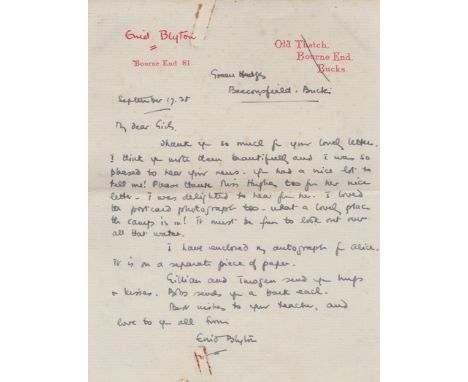 Enid Blyton
Bourne End 81.
Old Thatch.
Bourne End.
Bucks.
Green Hedges
Beaconsfield. Bucks
September 19. 38
My dear Girls,
Thank you so much for your lovely letter.
I think you wrote them beautifully and I was so
pleased to hear your news. You had a nice lot to
tell me! Please thank Miss Hughes too for her nice
letter - I was delighted to hear from her. I loved
the postcard photograph too - what a lovely place
the camp is in! It must be fun to look out over
all that water.
I have enclosed my autograph for Alice.
It is on a separate piece of paper.
Gillian and Imogen send you hugs
& kisses. Bobs sends you a bark each.
Best wishes to your teacher, and
love to you all from
Enid Blyton